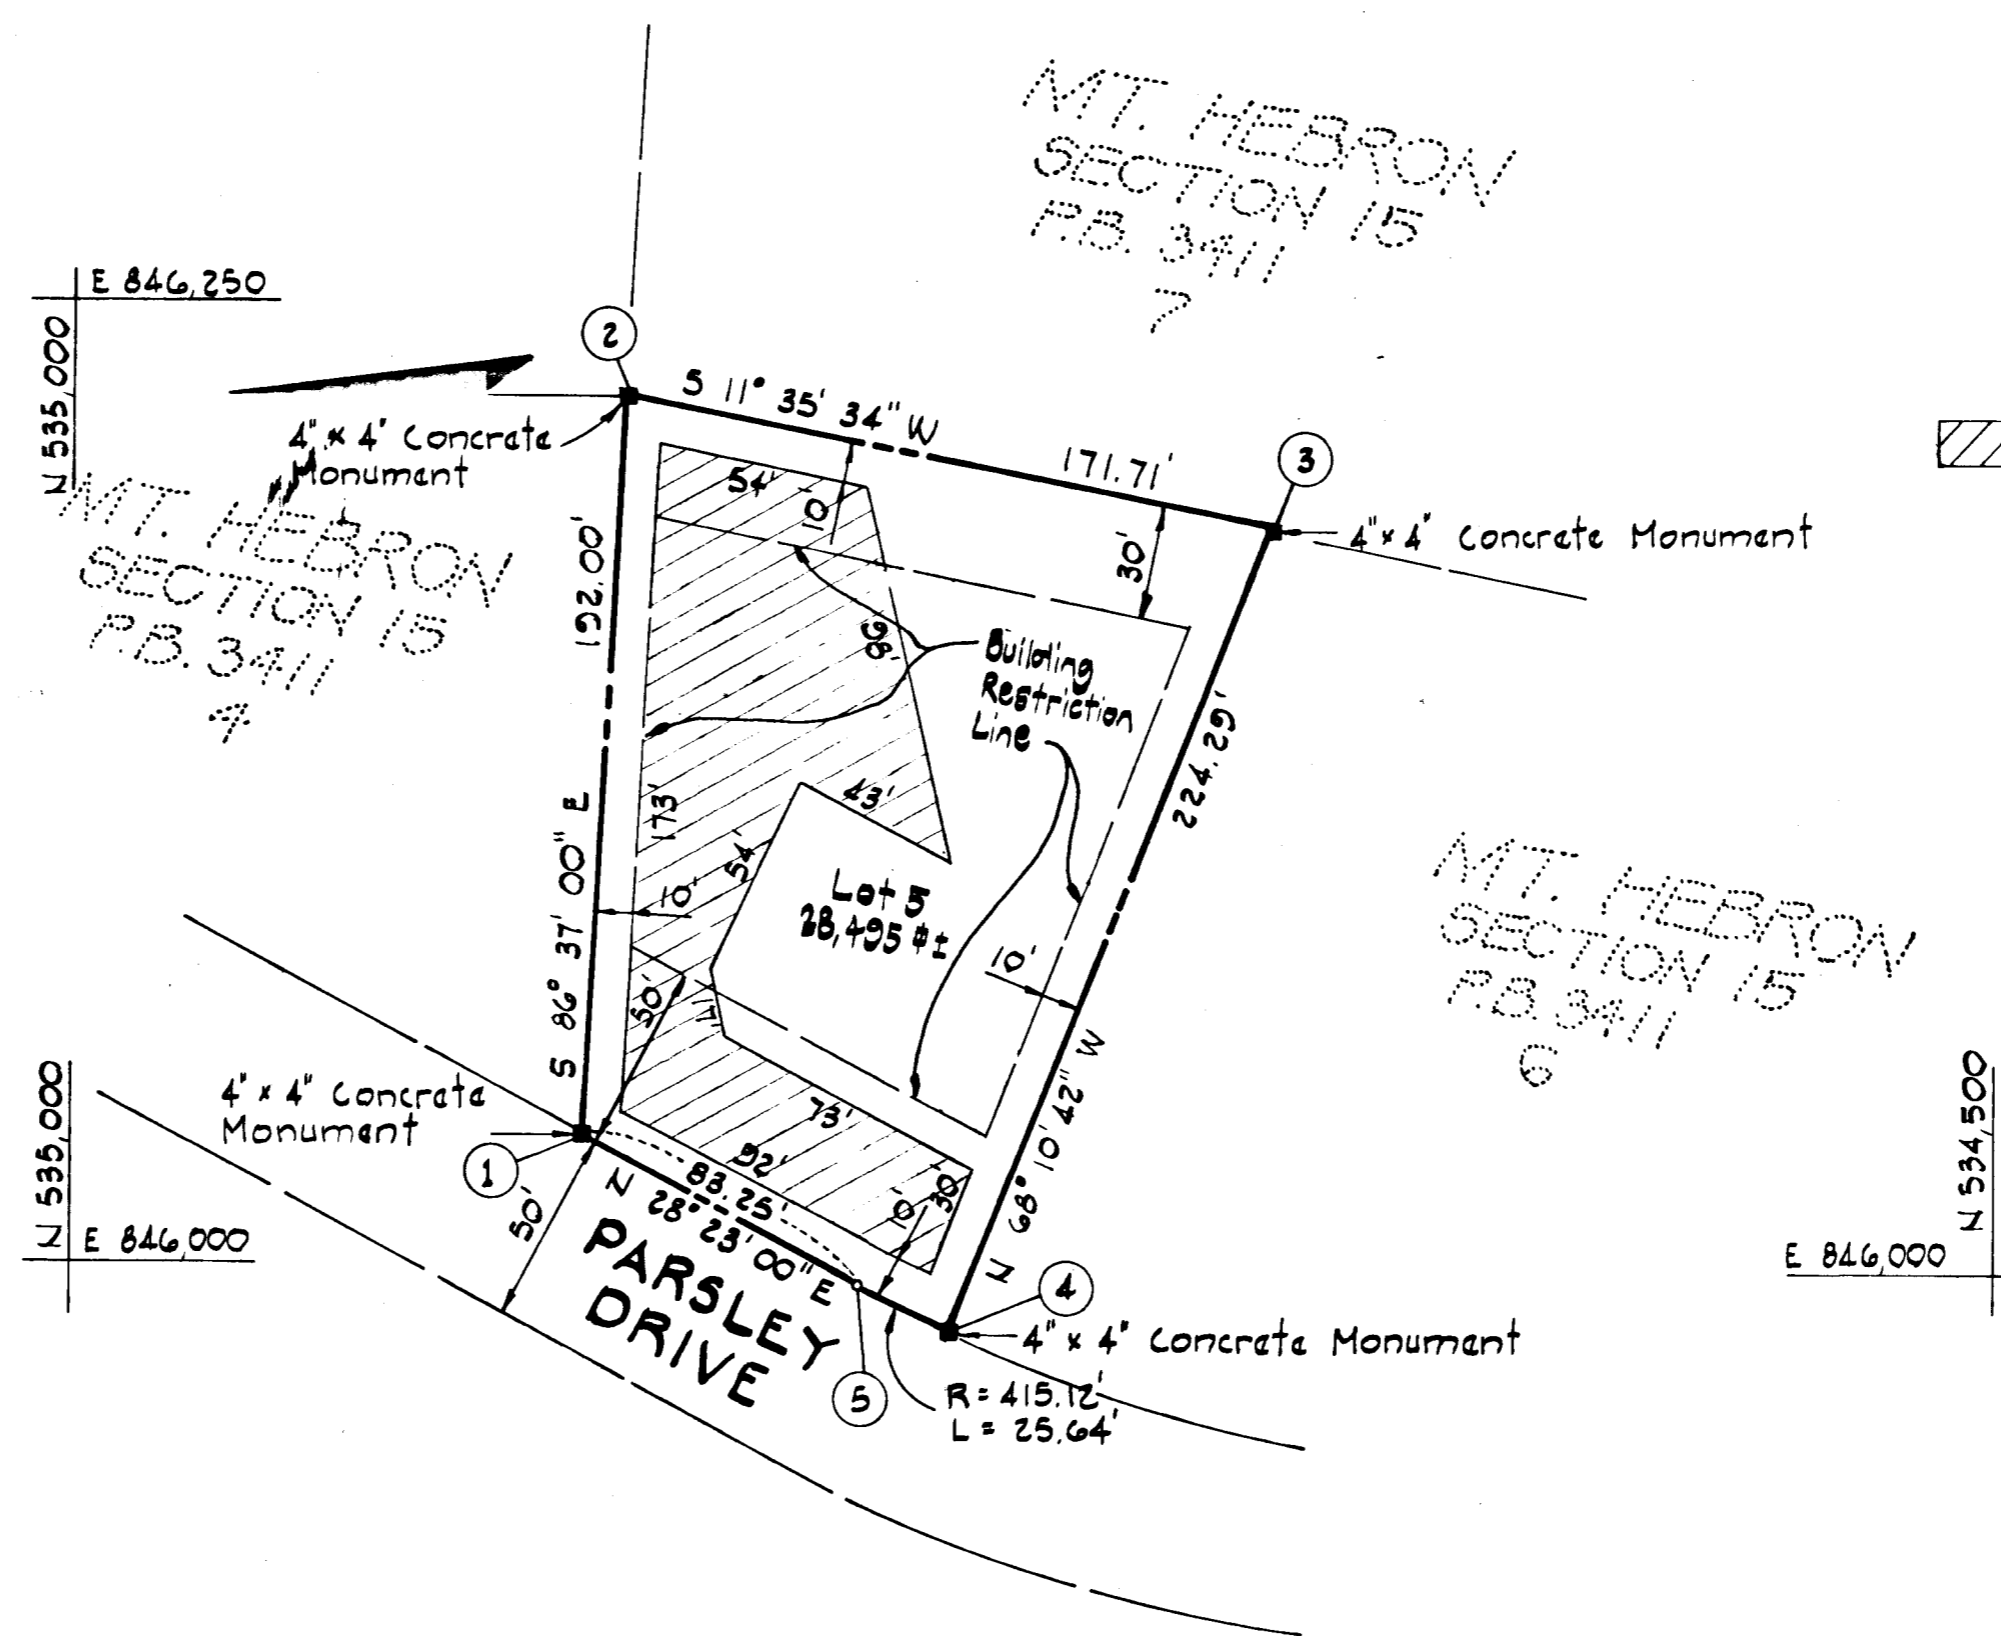 MT. HEBRON
SECTION 15
P.B. 3411
7
E 846,250
N 535,000
2
S 11° 35' 34" W
171.71'
3
4" x 4" Concrete
Monument
4" x 4" Concrete Monument
MT. HEBRON
SECTION 15
P.B. 3411
4
192.00'
S 86° 37' 00" E
54'
10'
30'
68'
Building
Restriction
Line
224.29'
N 68° 10' 42" W
173'
43'
54'
10'
Lot 5
28,495 ±
10'
50'
17'
MT. HEBRON
SECTION 15
P.B. 3411
6
N 535,000
E 846,000
4" x 4" Concrete
Monument
1
73'
92'
83.25'
N 28° 23' 00" E
10'
30'
50'
PARSLEY
DRIVE
4
4" x 4" Concrete Monument
5
R = 415.12'
L = 25.64'
N 534,500
E 846,000